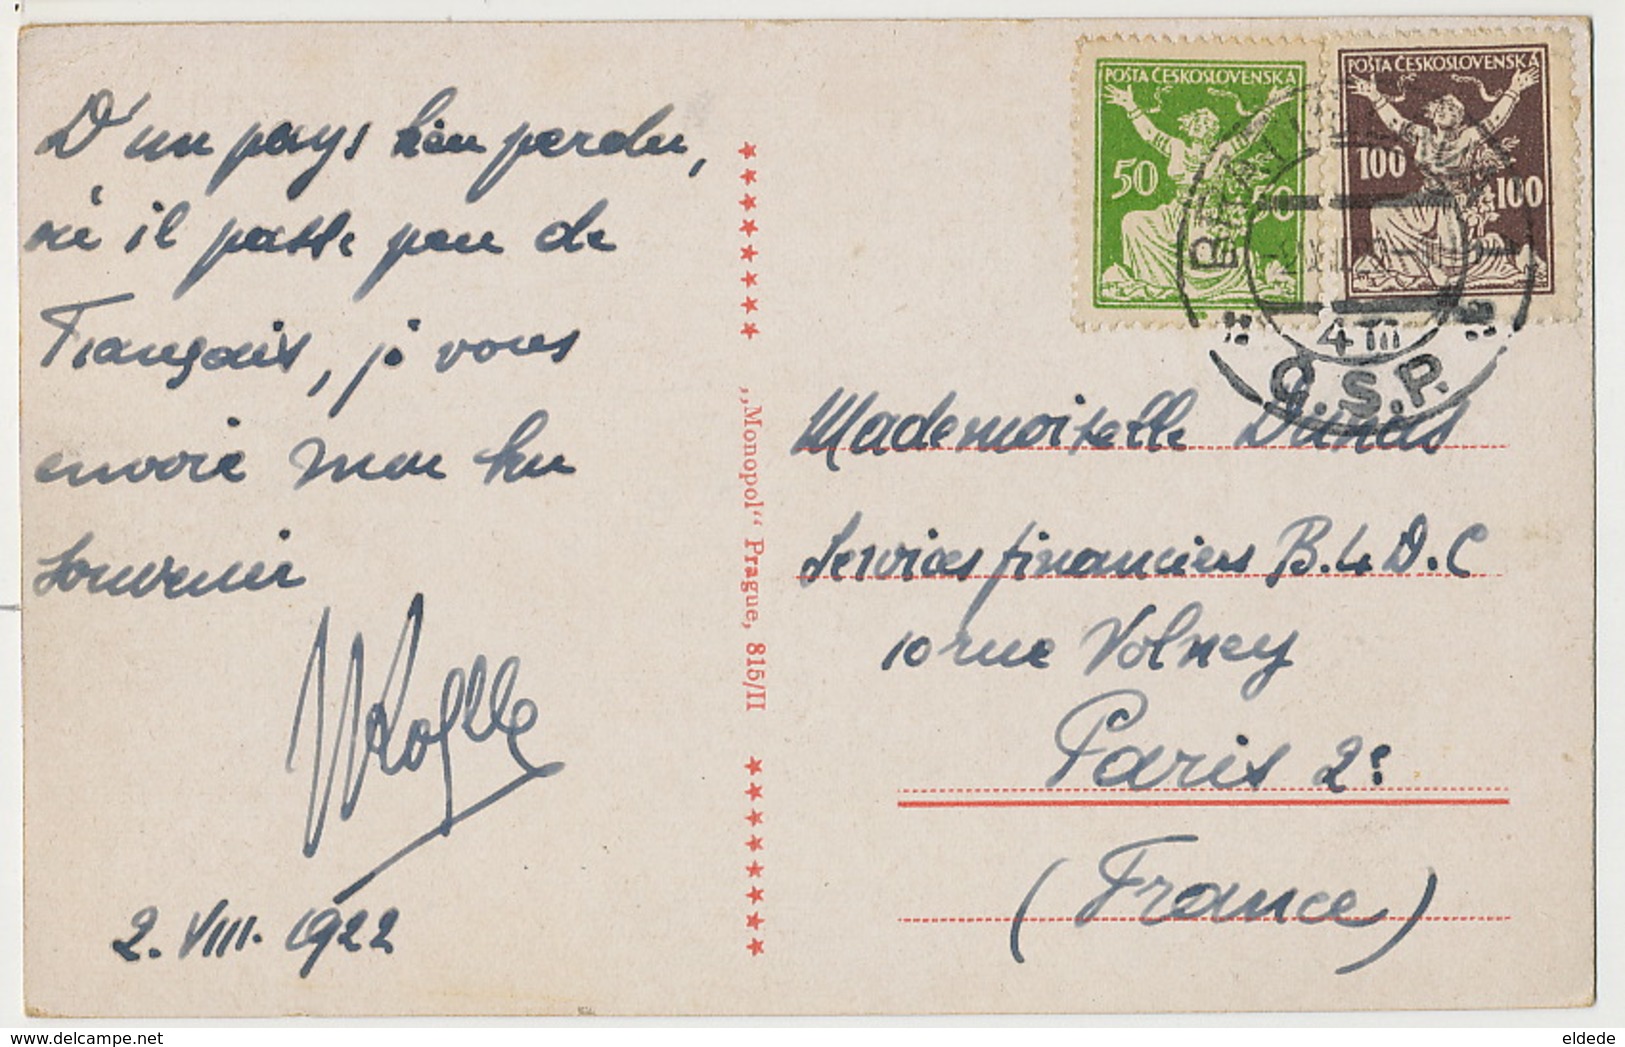 D'un pays bien perdu,
où il passe peu de
Français, je vous
envoie mon bon
souvenir
2. VIII. 1922
„Monopol“ Prague, 815/II
POŠTA ČESKOSLOVENSKÁ
50 50
POŠTA ČESKOSLOVENSKÁ
100 100
4 m
Č.S.P.
Mademoiselle
Services financiers B.4.D.C
10 rue Volney
Paris 2e
(France)
eldede